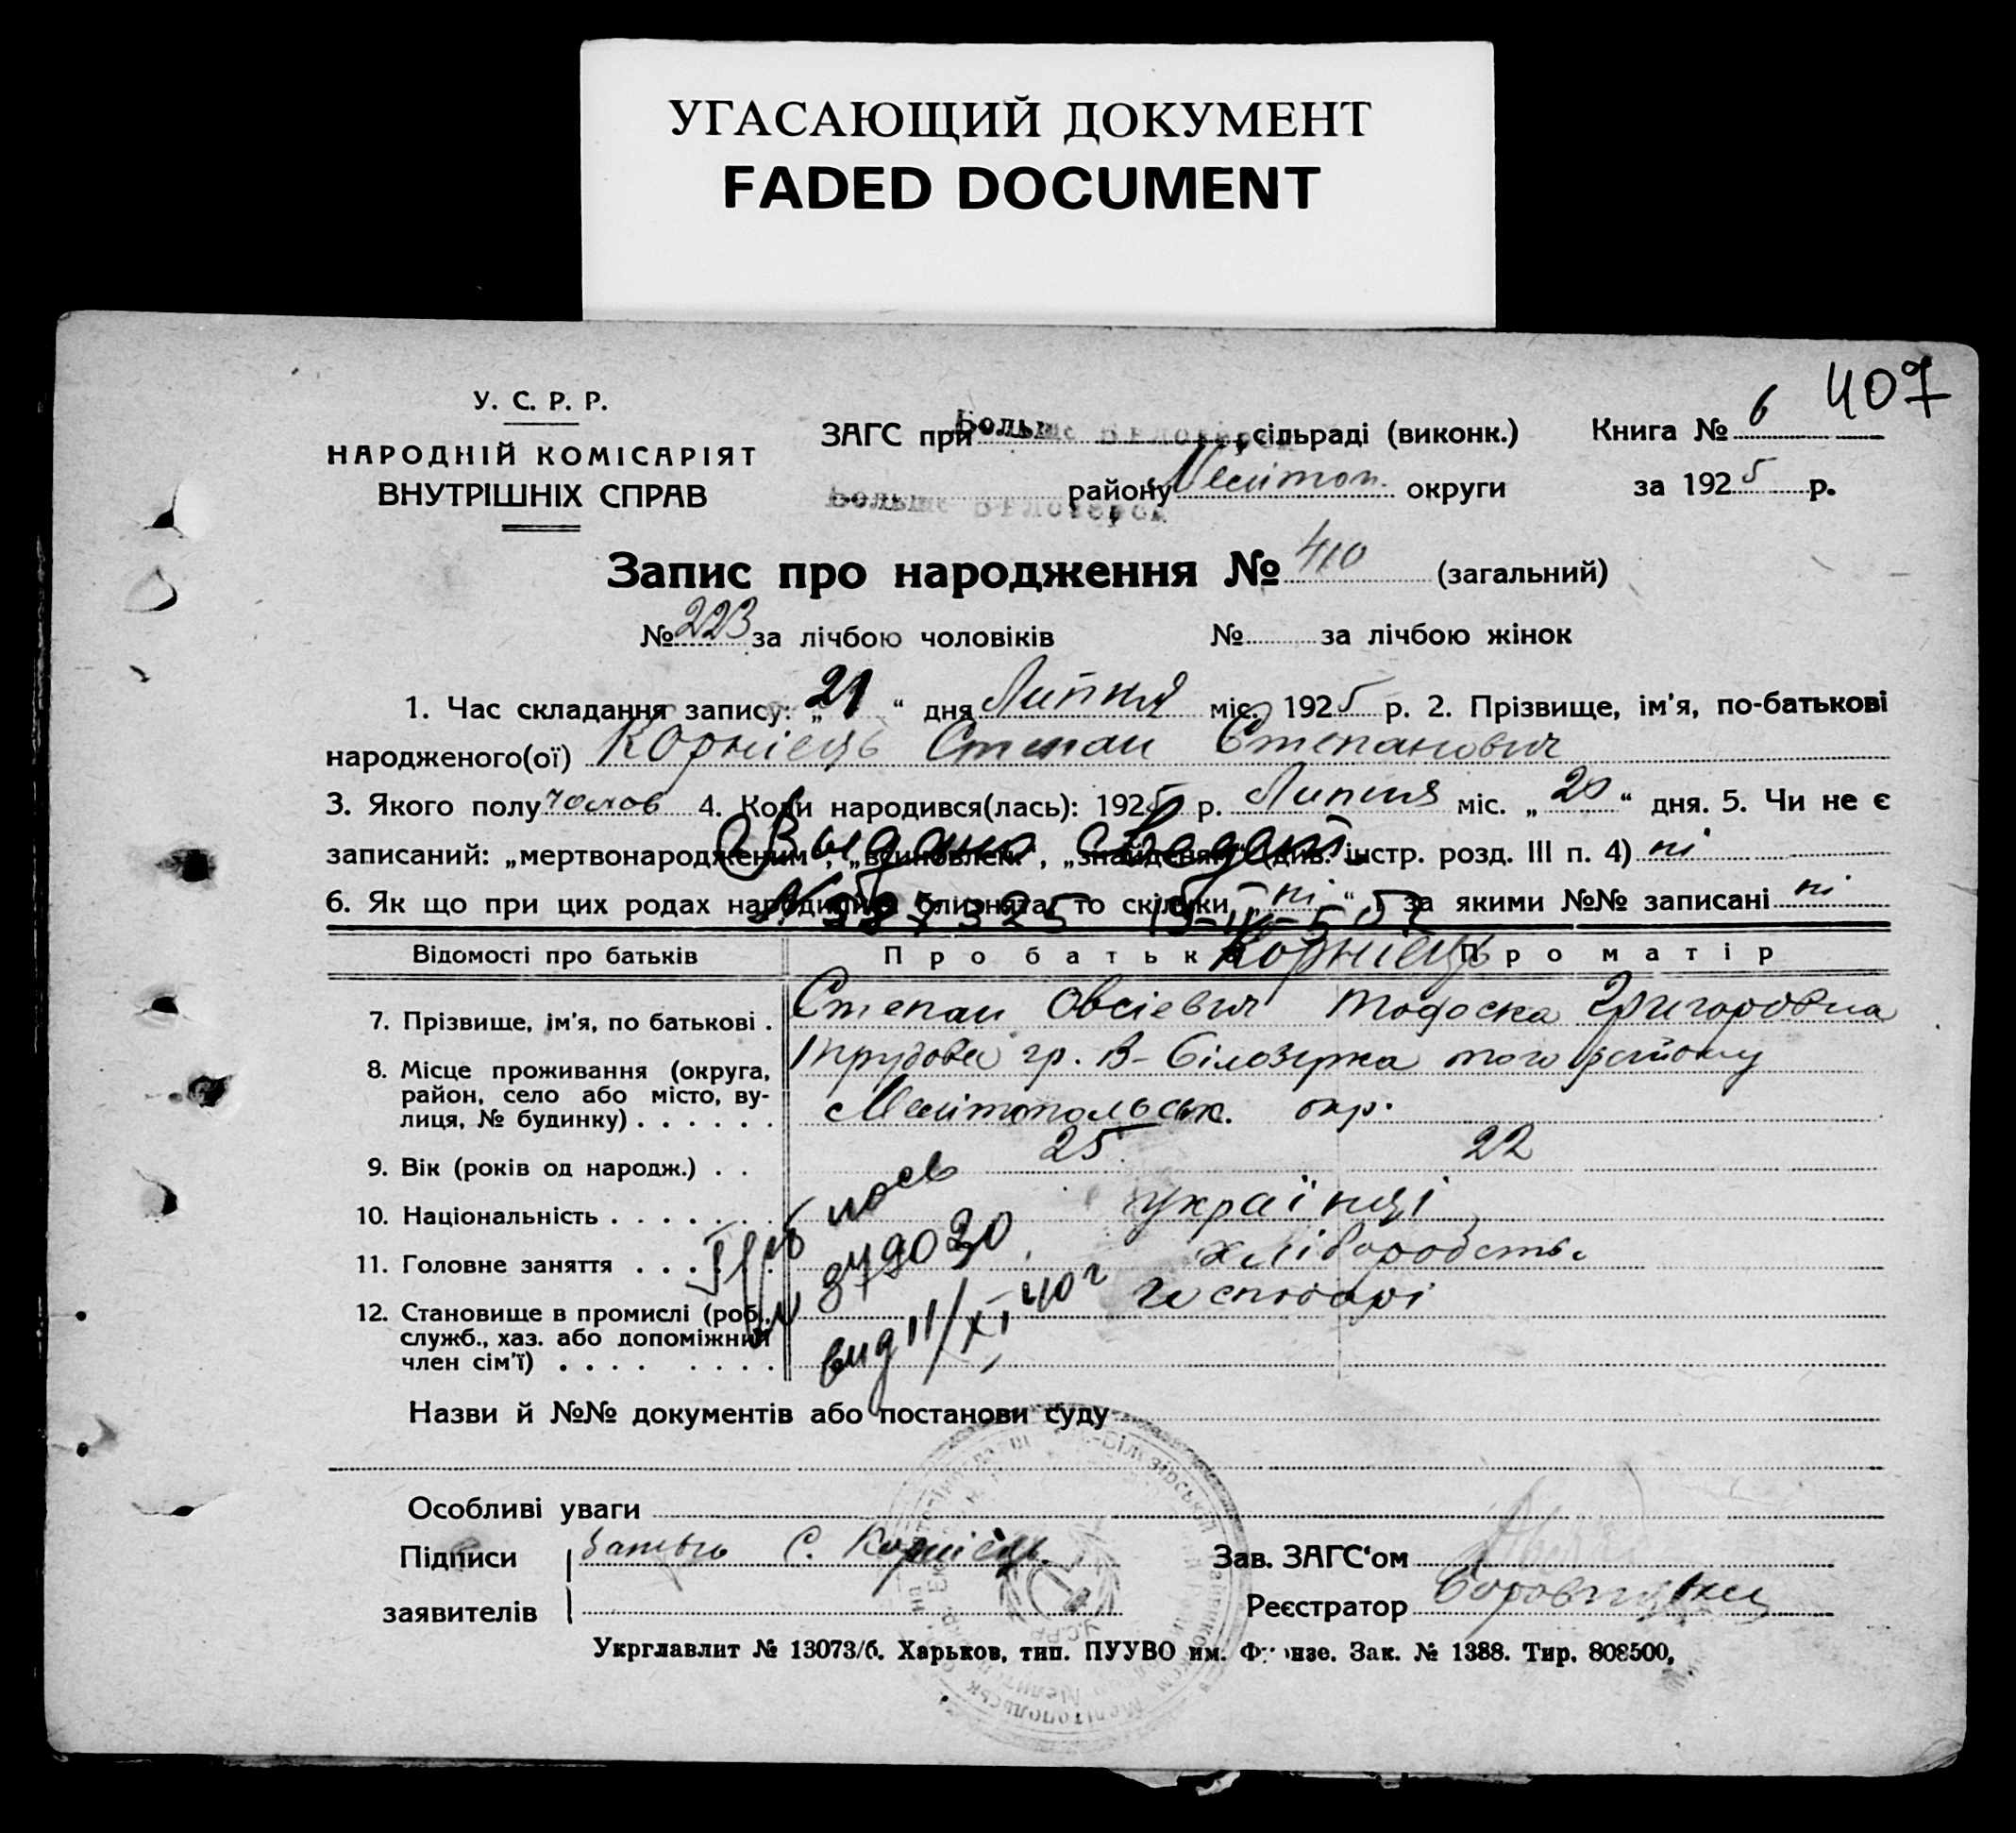 УГАСАЮЩИЙ ДОКУМЕНТ
FADED DOCUMENT
407
У. С. Р. Р.
НАРОДНІЙ КОМІСАРІЯТ
ВНУТРІШНІХ СПРАВ
ЗАГС при Больше Белозерск сільраді (виконк.) Книга № 6
Больше Белозерск району Мелітоп. округи за 1925 р.
Запис про народження № 410 (загальний)
№ 223 за лічбою чоловіків № за лічбою жінок
1. Час складання запису: „21“ дня Липня міс. 1925 р. 2. Прізвище, ім'я, по-батькові
народженого(ої) Корнієць Степан Степанович
3. Якого полу чолов 4. Коли народився(лась): 1925 р. Липня міс. „20“ дня. 5. Чи не є
записаний: „мертвонародженим“, „всиновлен.“, „знайденям“ (див. інстр. розд. III п. 4) ні
6. Як що при цих родах народилися близнята, то скільки „ні“ і за якими №№ записані ні
Відомості про батьків Про батька Про матір
Корнієць
7. Прізвище, ім'я, по батькові . Степан Овсієвич Григоровна
8. Місце проживання (округа, район, село або місто, вулиця, № будинку) . . . . . . гр. В-Білозерка того району
Мелітопольськ. окр.
9. Вік (років од народж.) . . 25 22
10. Національність . . . . . . українці
11. Головне заняття . . . . . . хлібородств.
12. Становище в промислі (роб., служб., хаз. або допоміжний член сім'ї) . . . . . . . . господарі
879030
вид 11/XI 40 г
Назви й №№ документів або постанови суду
Особливі уваги
Підписи батько С. Корнієць Зав. ЗАГС‘ом
заявителів Реєстратор
Укрглавлит № 13073/б. Харьков, тип. ПУУВО им. Фрунзе. Зак. № 1388. Тир. 808500,